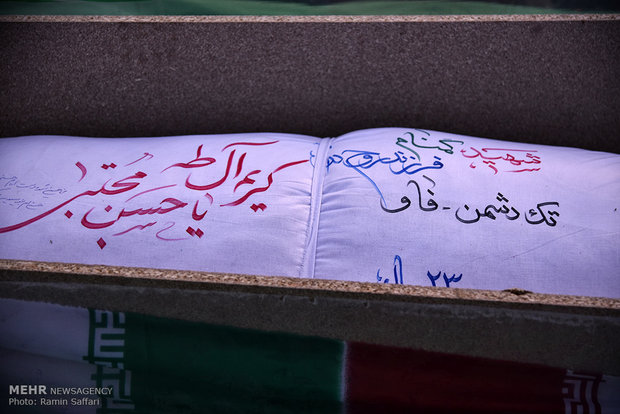 شهید گمنام
فرزند روح الله
تک دشمن - فاو
۲۳ سال
کریم آل طه
یا حسن مجتبی
MEHR NEWSAGENCY
Photo: Ramin Saffari